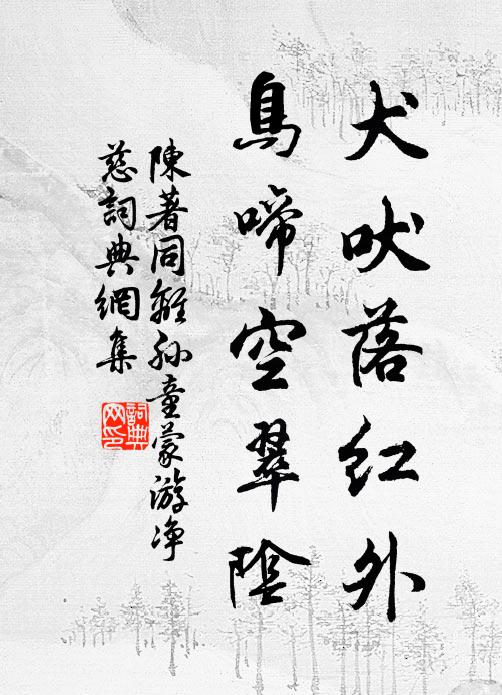 犬吠落紅外
鳥啼空翠陰
陳著同雜孫童蒙游净
慈詞典網集
詞典网印